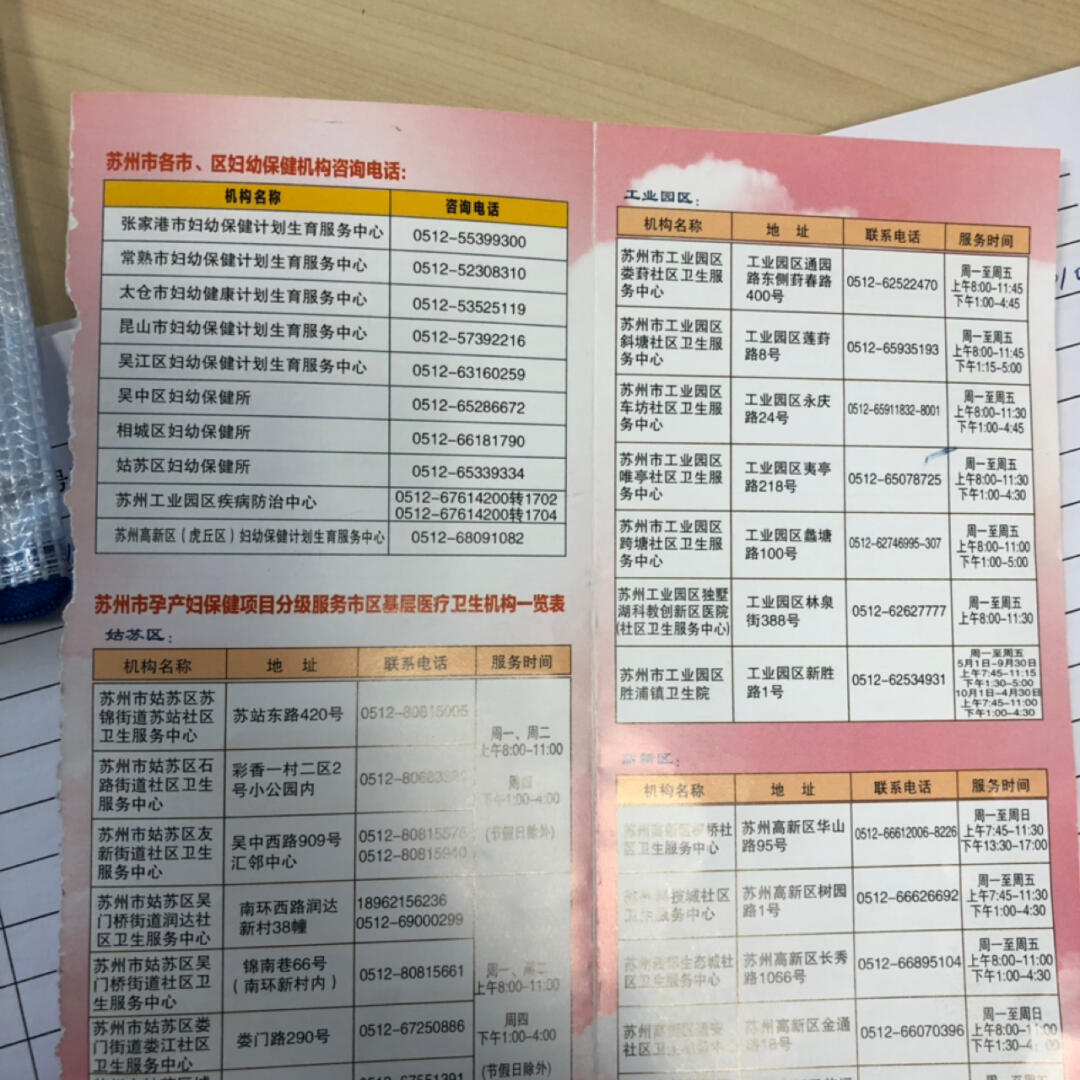 苏州市各市、区妇幼保健机构咨询电话:
机构名称 咨询电话
张家港市妇幼保健计划生育服务中心 0512-55399300
常熟市妇幼保健计划生育服务中心 0512-52308310
太仓市妇幼健康计划生育服务中心 0512-53525119
昆山市妇幼保健计划生育服务中心 0512-57392216
吴江区妇幼保健计划生育服务中心 0512-63160259
吴中区妇幼保健所 0512-65286672
相城区妇幼保健所 0512-66181790
姑苏区妇幼保健所 0512-65339334
苏州工业园区疾病防治中心 0512-67614200转1702
0512-67614200转1704
苏州高新区(虎丘区)妇幼保健计划生育服务中心 0512-68091082
苏州市孕产妇保健项目分级服务市区基层医疗卫生机构一览表
姑苏区:
机构名称 地 址 联系电话 服务时间
苏州市姑苏区苏
锦街道苏站社区
卫生服务中心
苏站东路420号
周一、周二
上午8:00-11:00
周四
下午1:00-4:00
(节假日除外)
苏州市姑苏区石
路街道社区卫生
服务中心
彩香一村二区2
号小公园内
苏州市姑苏区友
新街道社区卫生
服务中心
吴中西路909号
汇邻中心
苏州市姑苏区吴
门桥街道润达社
区卫生服务中心
南环西路润达
新村38幢
18962156236
0512-69000299
苏州市姑苏区吴
门桥街道社区卫
生服务中心
锦南巷66号
(南环新村内)
0512-80815661
周一、周二
上午8:00-11:00
周四
下午1:00-4:00
(节假日除外)
苏州市姑苏区娄
门街道娄江社区
卫生服务中心
娄门路290号
0512-67250886
工业园区:
机构名称 地 址 联系电话 服务时间
苏州市工业园区
娄葑社区卫生服
务中心
工业园区通园
路东侧葑春路
400号
0512-62522470
周一至周五
上午8:00-11:45
下午1:00-4:45
苏州市工业园区
斜塘社区卫生服
务中心
工业园区莲葑
路8号
0512-65935193
周一至周五
上午8:00-11:45
下午1:15-5:00
苏州市工业园区
车坊社区卫生服
务中心
工业园区永庆
路24号
0512-65911832-8001
周一至周五
上午8:00-11:30
下午1:00-4:45
苏州市工业园区
唯亭社区卫生服
务中心
工业园区夷亭
路218号
0512-65078725
周一至周五
上午8:00-11:30
下午1:00-4:30
苏州市工业园区
跨塘社区卫生服
务中心
工业园区蠡塘
路100号
0512-62746995-307
周一至周五
上午8:00-11:00
下午1:00-5:00
苏州工业园区独墅
湖科教创新区医院
(社区卫生服务中心)
工业园区林泉
街388号
0512-62627777
周一至周五
上午8:00-11:30
苏州市工业园区
胜浦镇卫生院
工业园区新胜
路1号
0512-62534931
周一至周五
5月1日-9月30日
上午7:45-11:15
下午1:30-5:00
10月1日-4月30日
上午7:45-11:00
下午1:00-4:30
高新区:
机构名称 地 址 联系电话 服务时间
桥社
区卫生服务中心
苏州高新区华山
路95号
0512-66612006-8226
周一至周日
上午7:45-11:30
下午13:30-17:00
技城社区
服务中心
苏州高新区树园
路1号
0512-66626692
周一至周五
上午7:45-11:30
下午1:00-4:30
生态城社
区卫生服务中心
苏州高新区长秀
路1066号
0512-66895104
周一至周五
上午8:00-11:00
下午1:00-4:30
苏州高新区通安
社区卫生服务中心
苏州高新区金通
路18号
0512-66070396
周一至周日
上午8:00-11:00